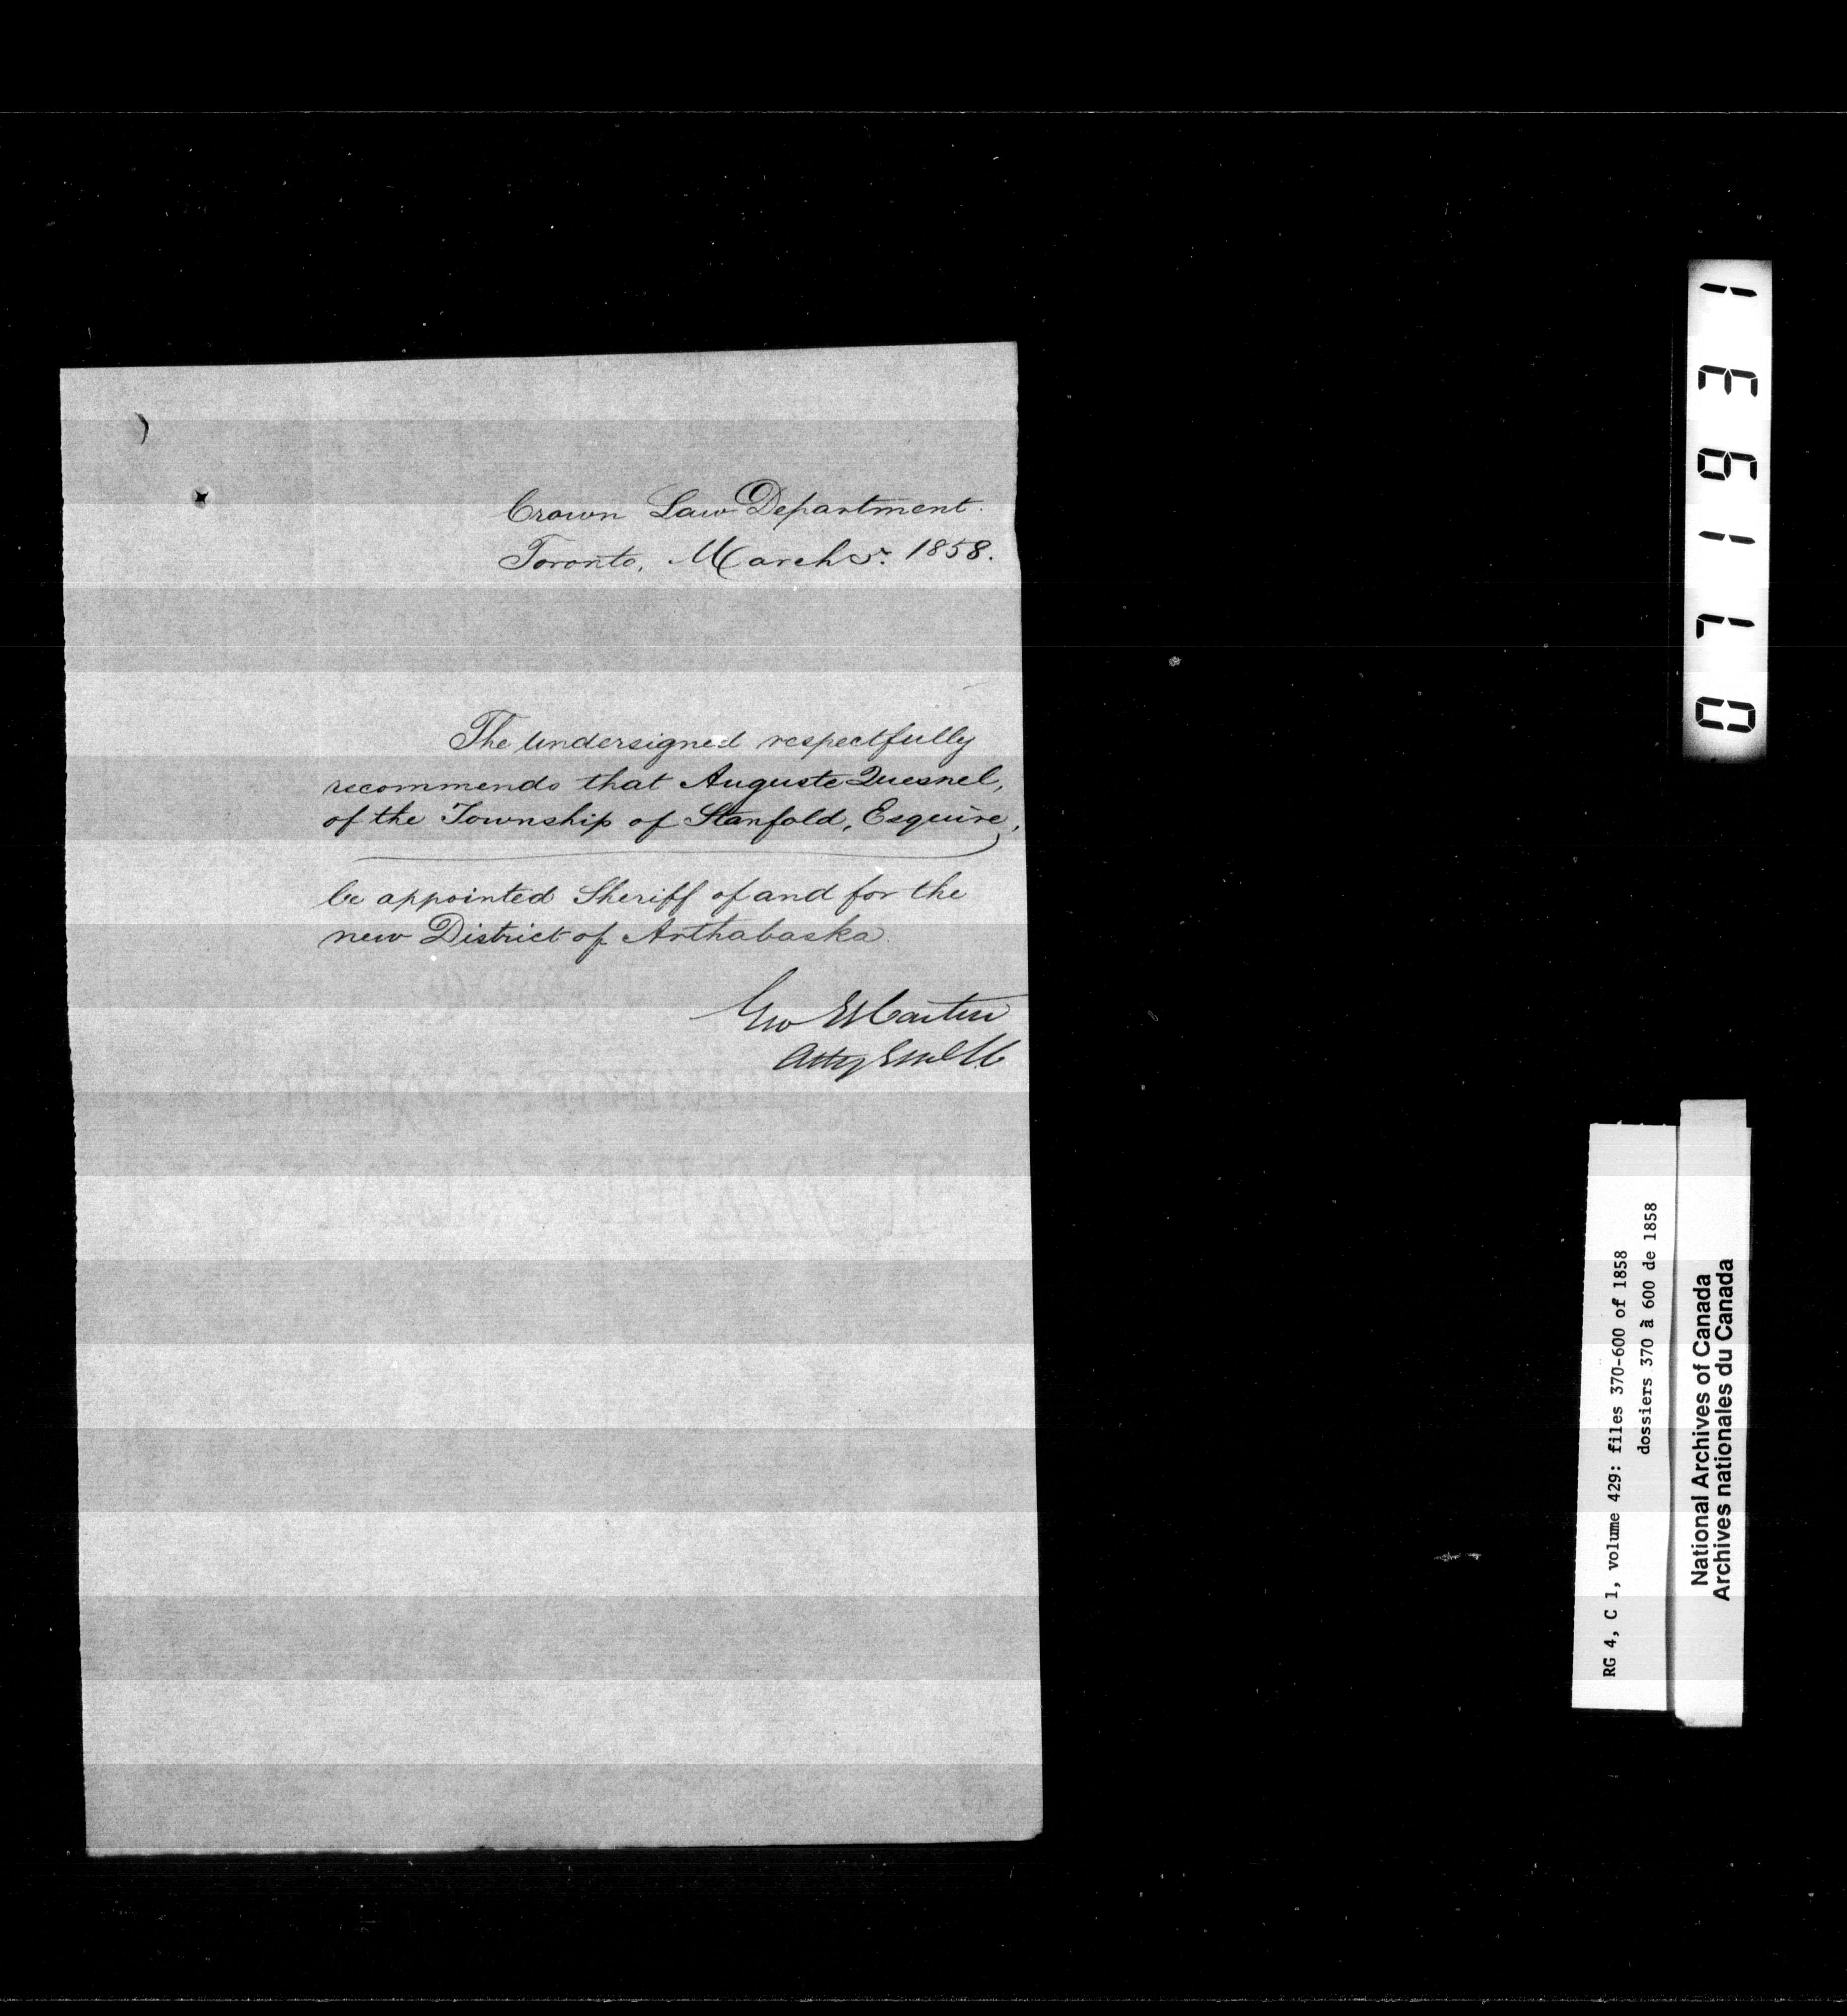 Crown Law Department.
Toronto, March 5. 1858.
The undersigned respectfully
recommends that Auguste Quesnel,
of the Township of Stanfold, Esquire,
be appointed Sheriff of and for the
new District of Arthabaska.
Geo E Cartier
Atty Genl
071931
RG 4, C 1, volume 429: files 370-600 of 1858
dossiers 370 à 600 de 1858
National Archives of Canada
Archives nationales du Canada